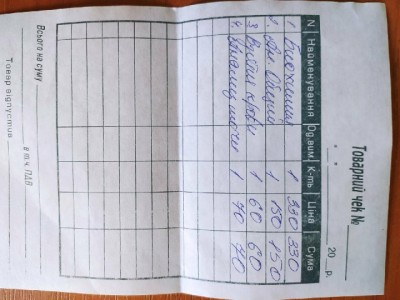 Товарний чек №
" " 20 р.
N Найменування Од.вим. К-ть Ціна Сума
1 Биохимия 1 330 330
2. Общий 1 150 150
3 крови 1 60 60
4. мочи 1 70 70
Всього на суму в т.ч. ПДВ
Товар відпустив